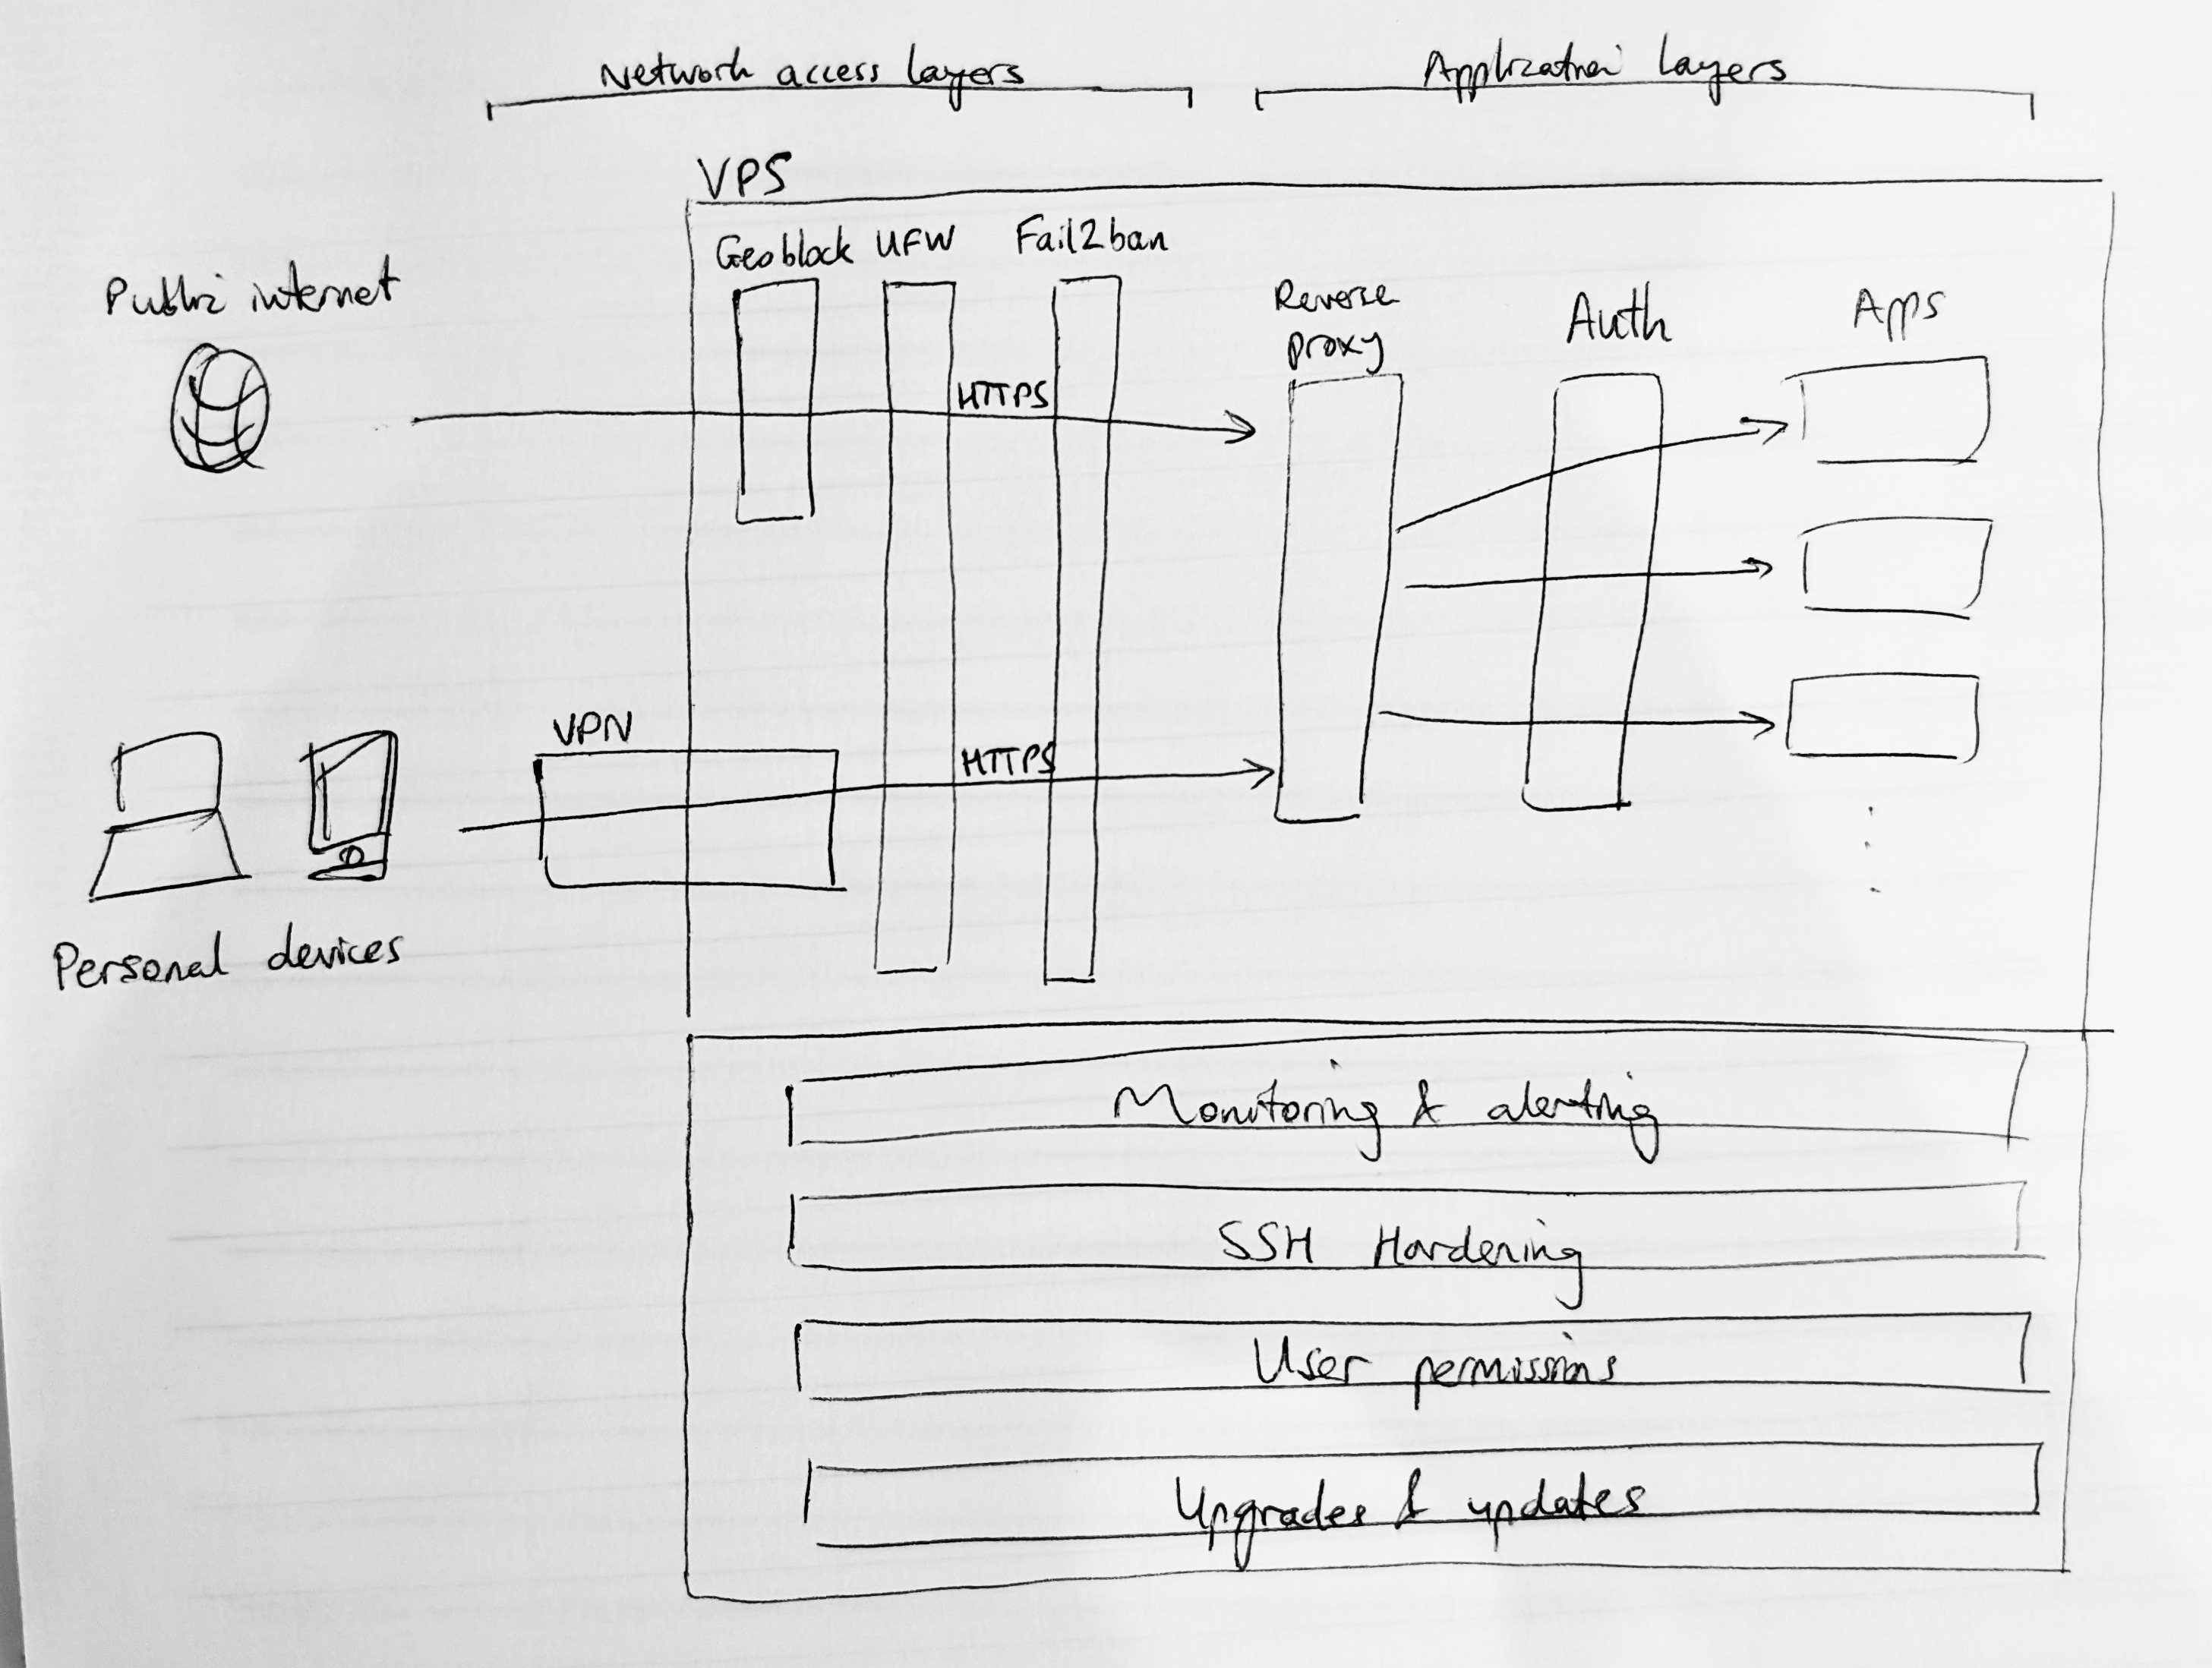 Network access layers
Application layers
VPS
Geoblock
UFW
Fail2ban
Public internet
Reverse
proxy
Auth
Apps
HTTPS
VPN
HTTPS
Personal devices
Monitoring & alerting
SSH Hardening
User permissions
Upgrades & updates